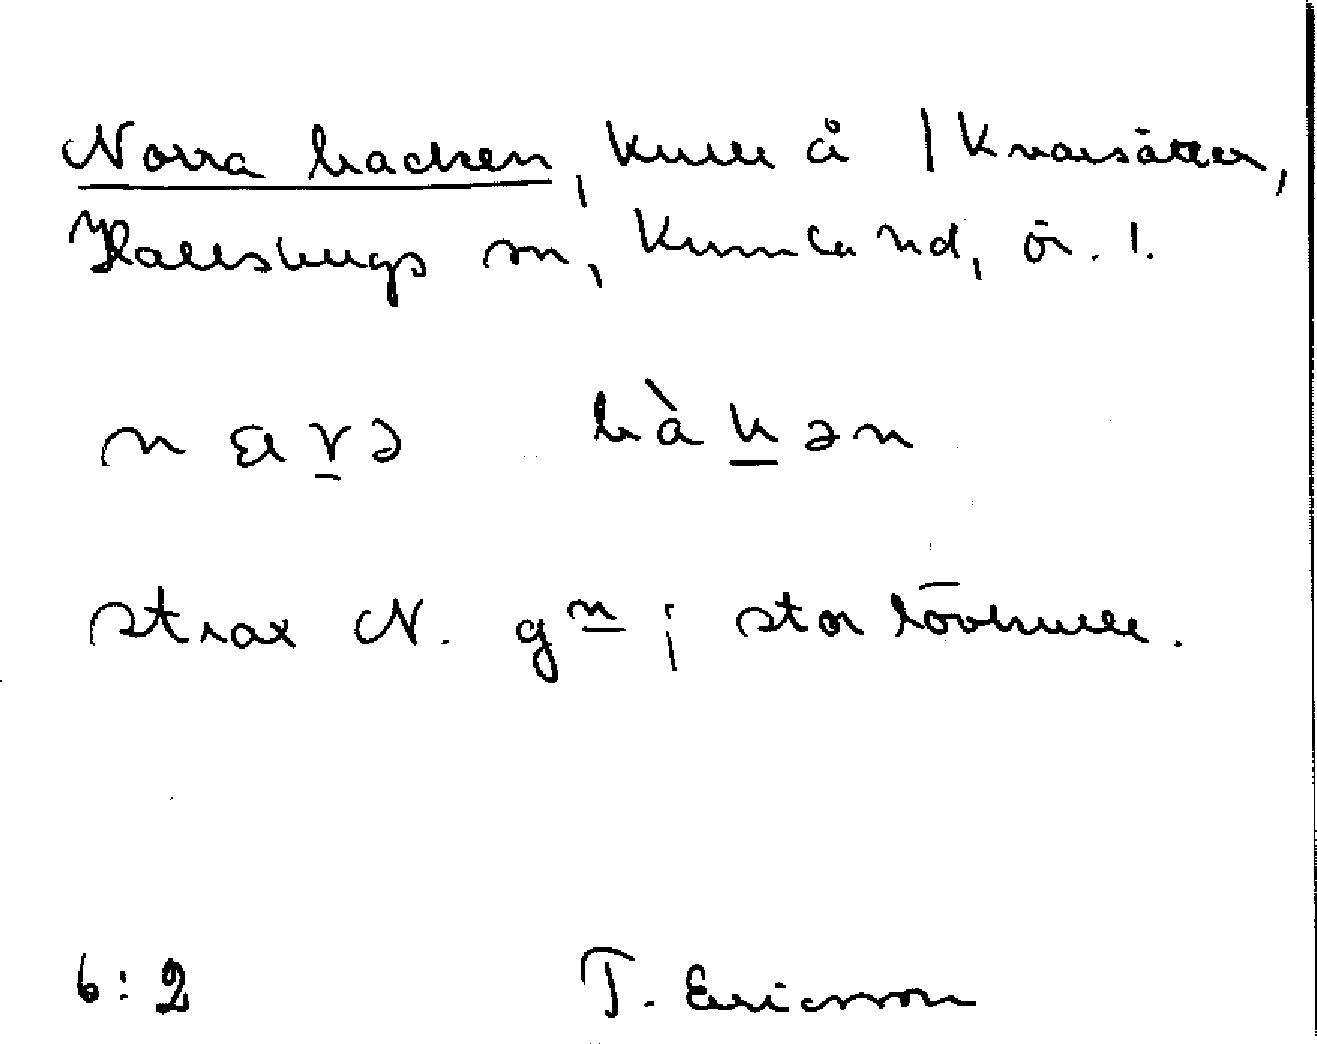 Norra backen, kulle å | Kvarsätter,
Hallsbergs sn, Kumla hd, ör. l.
bàkən
strax N. gn; stor lövkulle.
6:2 T. Ericsson